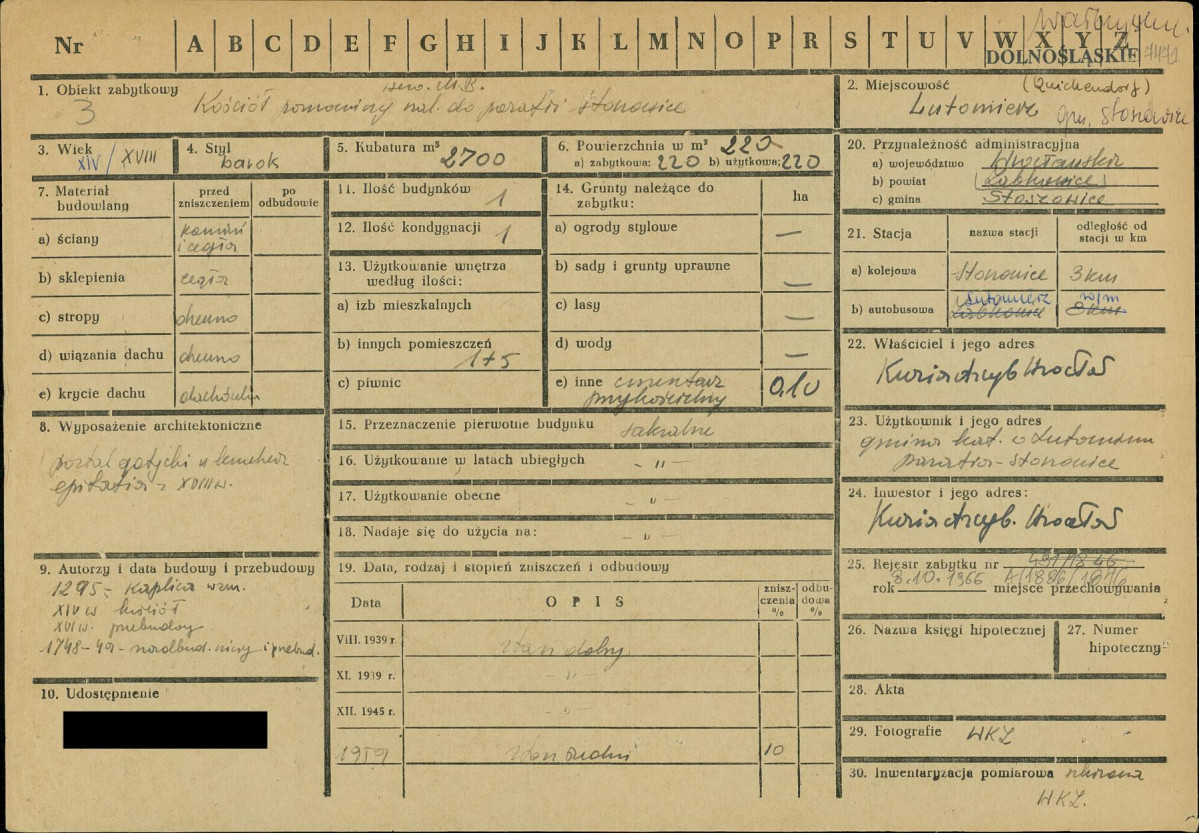 Nr A B C D E F G H I J K L M N O P R S T U V W X Y Z
DOLNOŚLĄSKIE
1. Obiekt zabytkowy
3 Kościół pomocniczy nal. do parafii Stoszowice
2. Miejscowość (Quickendorf)
Lutomierz gm. Stoszowice
3. Wiek
XIV/XVIII
4. Styl
barok
5. Kubatura m³
2700
6. Powierzchnia w m² 220
a) zabytkowa: 220 b) użytkowa: 220
20. Przynależność administracyjna
a) województwo Wrocławskie
b) powiat Ząbkowice
c) gmina Stoszowice
7. Materiał budowlany
przed zniszczeniem
po odbudowie
a) ściany kamień i cegła
b) sklepienia cegła
c) stropy drewno
d) wiązania dachu drewno
e) krycie dachu dachówka
11. Ilość budynków 1
12. Ilość kondygnacji 1
13. Użytkowanie wnętrza według ilości:
a) izb mieszkalnych
b) innych pomieszczeń 1+5
c) piwnic
14. Grunty należące do zabytku:
ha
a) ogrody stylowe —
b) sady i grunty uprawne —
c) lasy —
d) wody —
e) inne cmentarz przykościelny 0,10
21. Stacja
nazwa stacji
odległość od stacji w km
a) kolejowa Stoszowice 3 km
b) autobusowa Lutomierz Ząbkowice w/m 8 km
22. Właściciel i jego adres
Kuria Arcyb Wrocław
8. Wyposażenie architektoniczne
portal gotycki
epitafia z XVIII w.
15. Przeznaczenie pierwotne budynku sakralne
16. Użytkowanie w latach ubiegłych - " -
17. Użytkowanie obecne - " -
18. Nadaje się do użycia na: - " -
23. Użytkownik i jego adres
gmina kat. w Lutomierzu
parafia - Stoszowice
24. Inwestor i jego adres:
Kuria Arcyb. Wrocław
9. Autorzy i data budowy i przebudowy
1295 - kaplica wzm.
XIV w kościół
XVI w. przebudowy
1748-49 - przebud.
19. Data, rodzaj i stopień zniszczeń i odbudowy
Data
OPIS
zniszczenia %
odbudowa %
VIII. 1939 r. stan dobry
XI. 1939 r. - " -
XII. 1945 r. - " -
1959 stan średni 10
25. Rejestr zabytku nr
rok 8.10.1966 A/1886/1846 miejsce przechowywania
26. Nazwa księgi hipotecznej
27. Numer hipoteczny
28. Akta
10. Udostępnienie
29. Fotografie WKZ
30. Inwentaryzacja pomiarowa
WKZ.